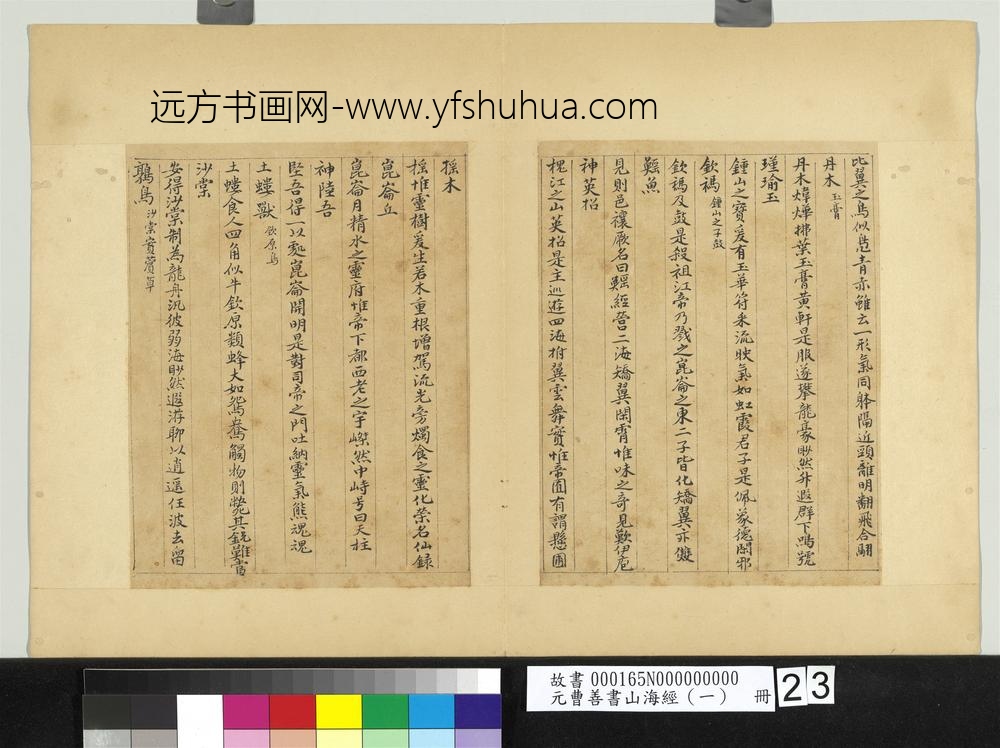 远方书画网-www.yfshuhua.com
比翼之鳥似鳧青赤雖云一形氣同體隔延頸離明翻飛合翮
丹木玉膏
丹木煒燁拂葉玉膏黃軒是服遂攀龍豪眇然升遐群下鳴號
瑾瑜玉
鍾山之寶爰有玉華符釆流映氣如虹霞君子是佩象德閑邪
欽䲹鍾山之子鼓
欽䲹及鼓是殺祖江帝乃戮之崑崙之東二子皆化矯翼亦
鰩魚
見則邑禳厥名曰鰩經營二海矯翼閑霄惟味之奇見歎伊庖
神英招
槐江之山英招是主巡遊四海拊翼雲舞實惟帝囿有謂懸圃
搖木
搖惟靈樹爰生若木重根增駕流光旁燭食之靈化榮名仙錄
崑崙丘
崑崙月精水之靈府惟帝下都西老之宇嶸然中峙号曰天柱
神陸吾
堅吾得一以處崑崙開明是對司帝之門吐納靈氣熊熊魂魂
土螻獸欽原鳥
土螻食人四角似牛欽原類蜂大如鴛鴦觸物則斃其銳難當
沙棠
安得沙棠制為龍舟汎彼弱海眇然遐游聊以逍遥任波去留
鶉鳥沙棠實薲草
故書 000165N000000000
元曹善書山海經(一) 冊
23